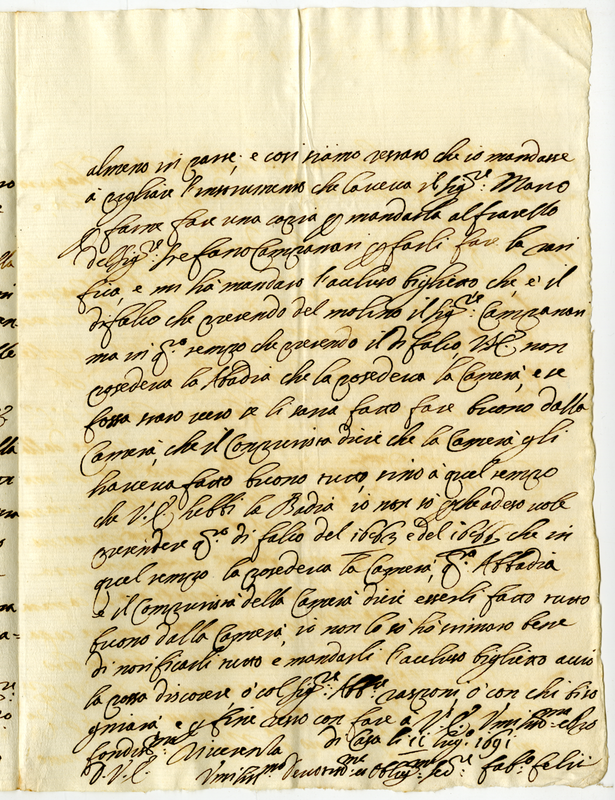 almeno in parte, e così siamo restato che io mandasse
à pigliare l'instrumento che l'aveva il Sig.re Mario
e farne fare una copia p mandarla al fratello
del Sig.re Stefano Campanari p farli fare la
fica, e mi hà mandato l'accluso biglietto che è il
difalco che pretendo del molino il Sig.re Campanari
ma in q.to tempo che pretendo il difalco V.S.I. non
posedeva la Abadia che la posedeva la Camera, e se
fosse stato vero se li saria fatto fare buono dalla
Camera, che il Computista dice che la Camera gli
haveva fatto buono tutto sino à quel tempo
che V.S.I. hebbi la Badia io non sò p che adeso vole
pretendere q.to difalco del 1663 e del che in
quel tempo la posedeva la Camera q.ta Abbadia
e il Computista della Camera dice esserli fatto tutto
buono dalla Camera, io non lo sò hò stimato bene
di notificarli tutto e mandarli l'accluso biglietto acciò
la possa discorere ò col Sig.re Abb.te ò con chi biso
gniarà e p fine resto con fare à V.S.I.
fondiss.ma Riverenla di Casa li 11 1691
D. V.S.I. Umiliss.mo Devotiss.mo et Obblig.mo Fab.o Felici